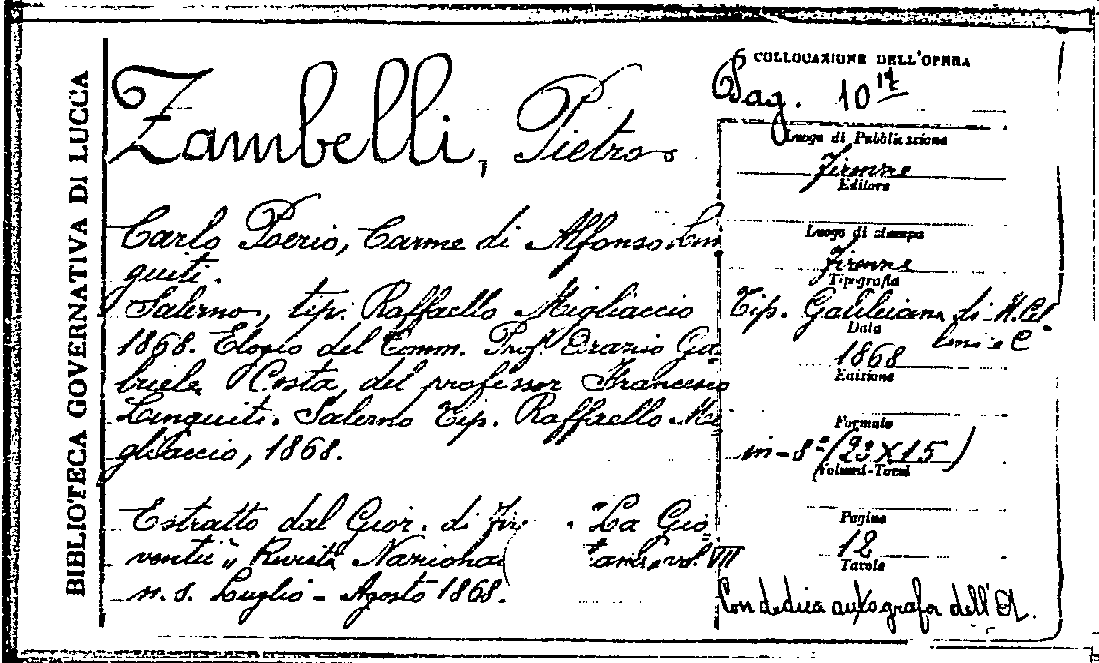 BIBLIOTECA GOVERNATIVA DI LUCCA
Zambelli, Pietro
Carlo Poerio, Carme di Alfonso Lin
guiti.
Salerno, tip. Raffaello Migliaccio
1868. Elogio del Comm. Prof. Orazio Ga
briele Costa, del professor Francesco
Linguiti. Salerno Tip. Raffaello Mi
gliaccio, 1868.
Estratto dal Gior. di Fir "La Gio
ventù" Rivista Naziona vol. VII
n. s. Luglio - Agosto 1868.
COLLOCAZIONE DELL'OPERA
Pag. 10
Luogo di Pubblicazione
Firenze
Editore
Luogo di stampa
Firenze
Tipografia
Tip. Galileiana di M. Cel
lini e C
Data
1868
Edizione
Formato
in-8° (23 X 15)
Volumi-Tomi
Pagine
12
Tavole
Con dedica autografa dell'A.